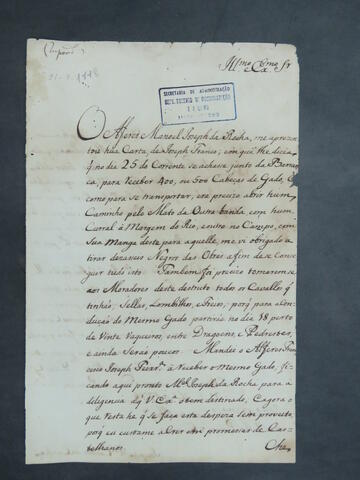 Ill.mo e Ex.mo Sr
21-1-1778
SECRETARIA DE ADMINISTRAÇÃO
DEPT. ENSINO E DOCUMENTAÇÃO
O Alferes Manoel Joseph da Rocha, me aprezen
tou hũa Carta, de Joseph Franco, em q' lhe dicia
q' no dia 25 do Corrente se achasse junto da
para receber 400, ou 500 Cabeças de Gado, E
como para se transportar, era precizo abrir hum
Caminho pelo Mato da Outra banda, com hum
Curral á Margem do Rio, e outro no Campo, com
Sua Manga deste para aquelle, me vi obrigado a
tirar Negros das Obras afim de se conse
guir tudo isto. Tambem foi precizo tomarem se
aos Moradores deste destricto todos os Cavallos q'
tinhão, Sellas, Lombilhos, e Freios; porq' para a Con
dução do mesmo Gado partirão no dia 18 perto
de Vinte Vaqueiros, entre Dragoens, e Pedestres,
e ainda Serão poucos. Mandei o Alferes
Joseph a receber o mesmo Gado, fi
cando aqui pronto M.el Joseph da Rocha para a
deligencia q' V. Ex.a o tem destinado, e agora o
que resta he q' se faça esta despeza sem proveito
porq' eu custame a crer em promessas de Cas
telhanos.